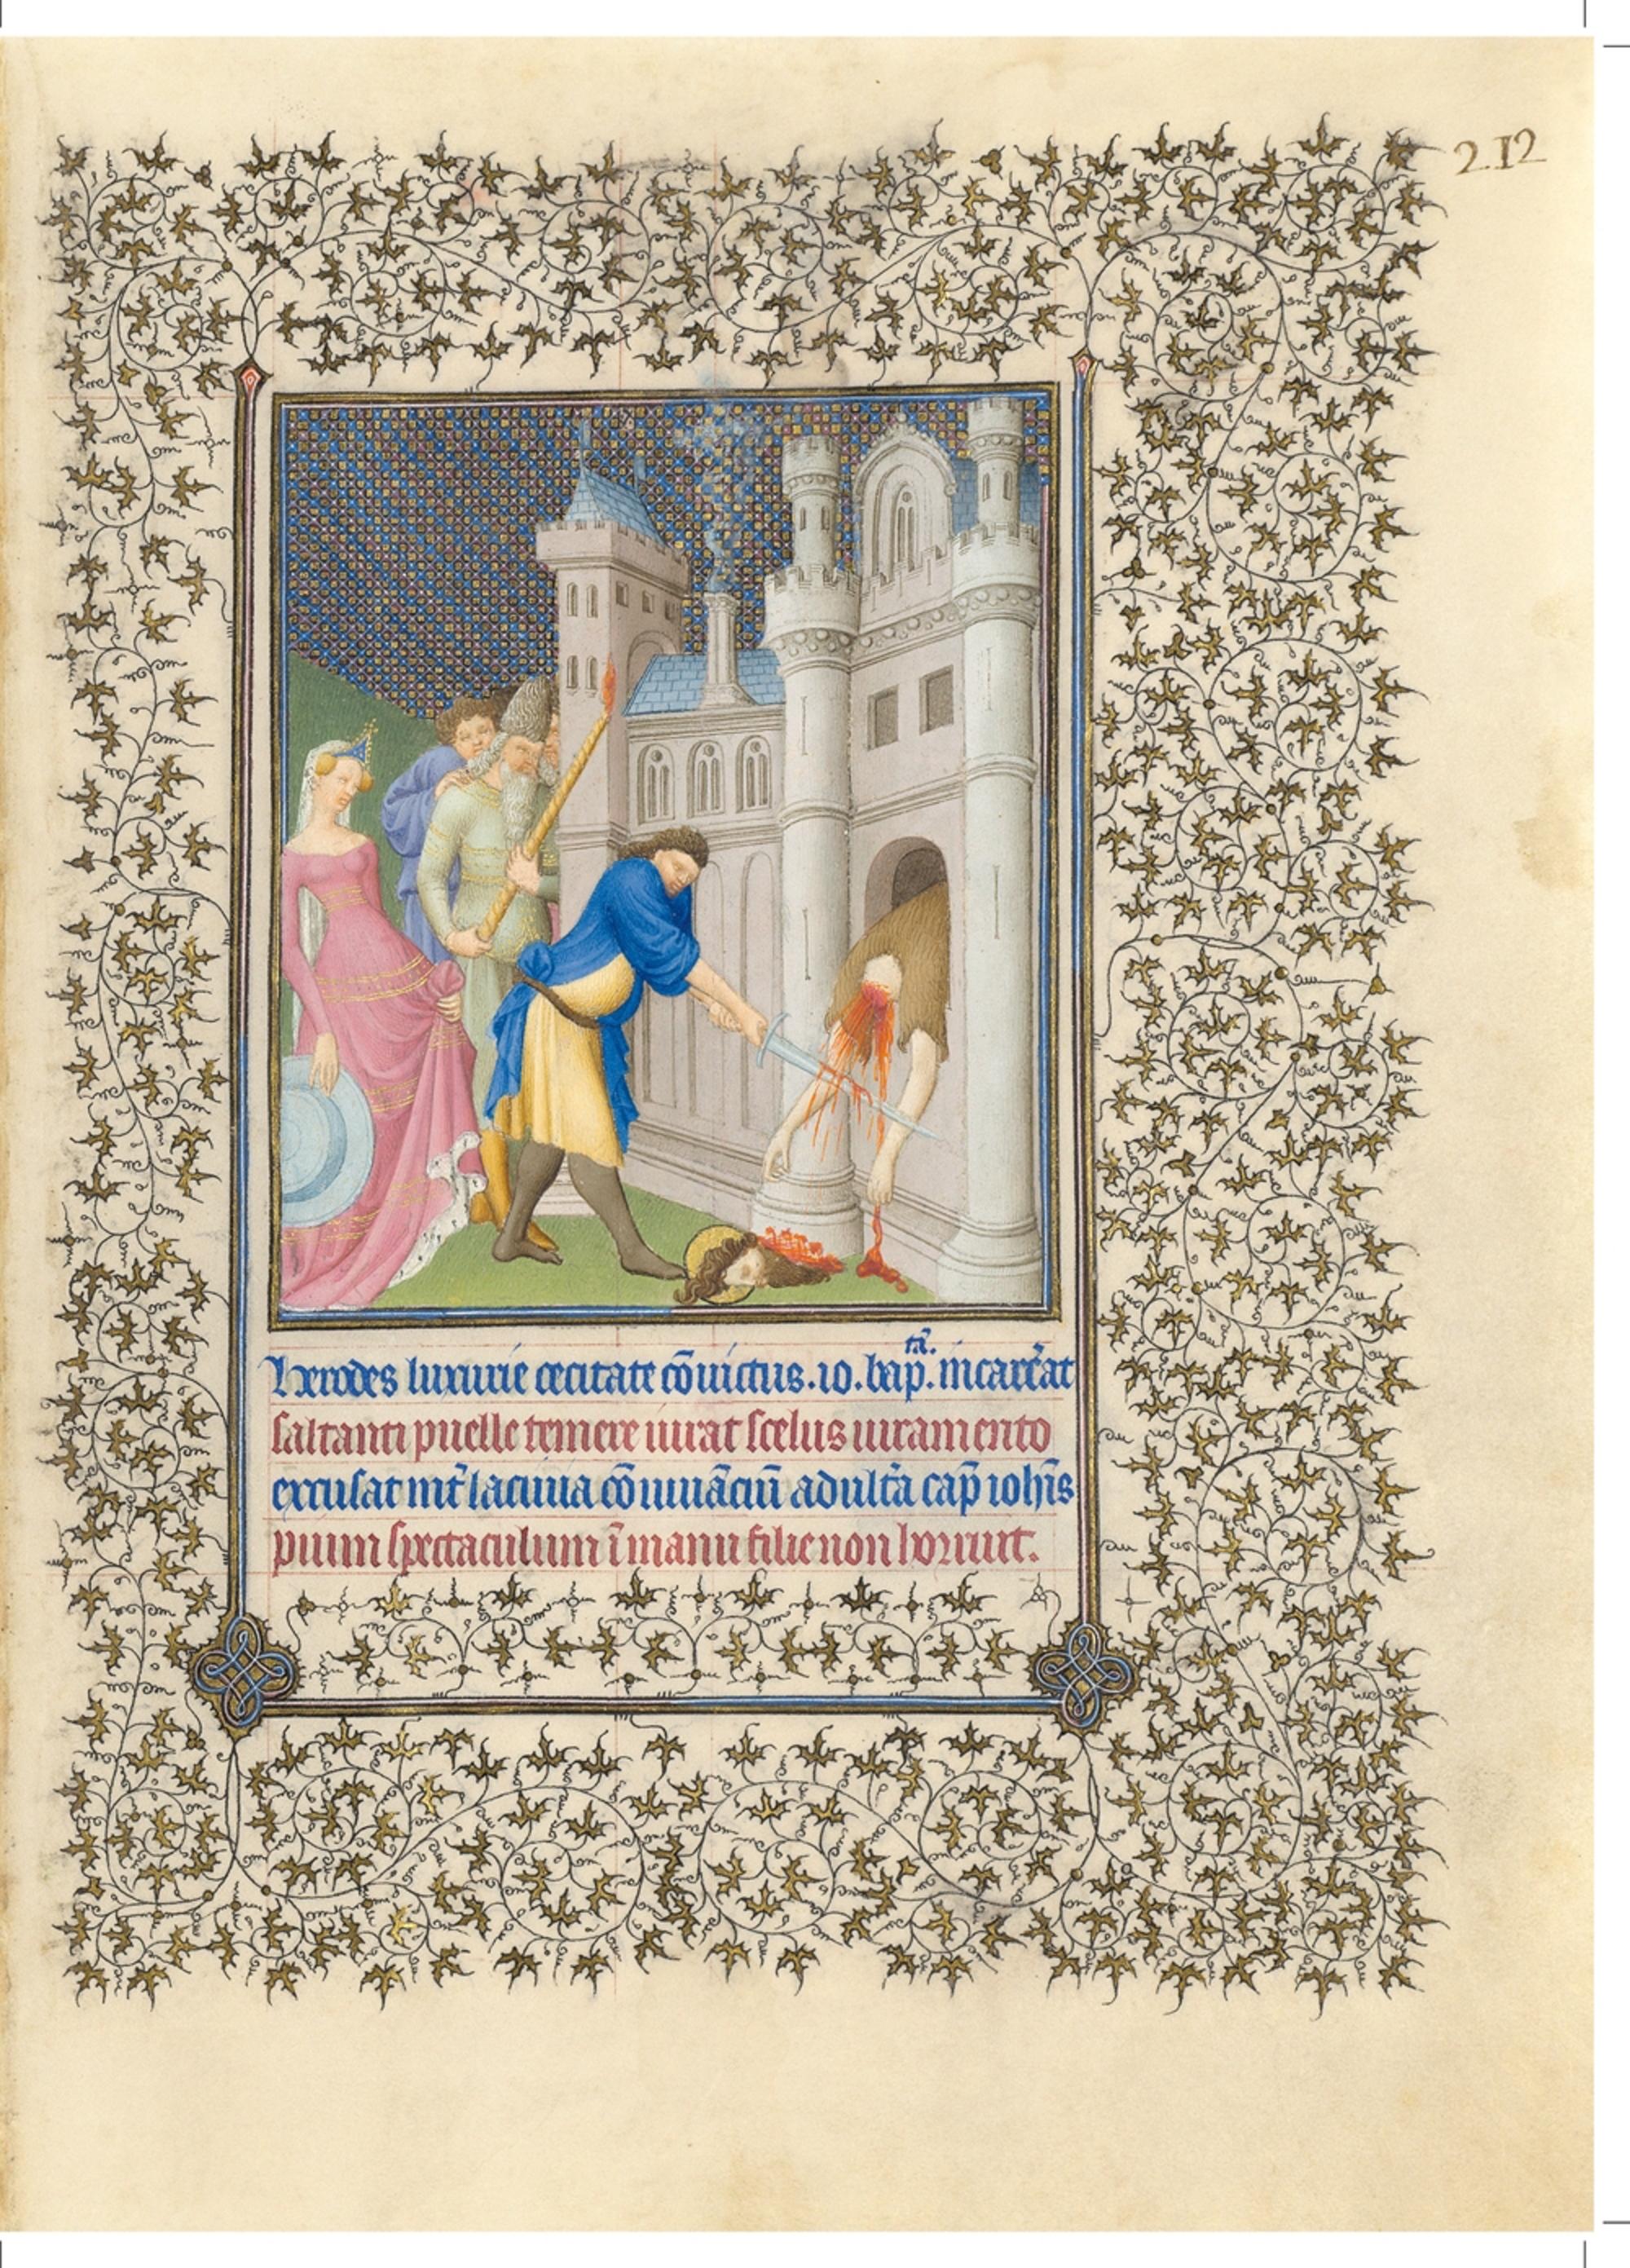 212
Herodes luxurie cecitate cōuictus.io.bap̄.ta᷃. incarc̄at
saltanti puelle temere iurat scelus iuramento
excusat mr̄ laciuia cōuiuāciū adult̄a cap̄ iohīs
puum spectaculum ī manu filie non horruit.